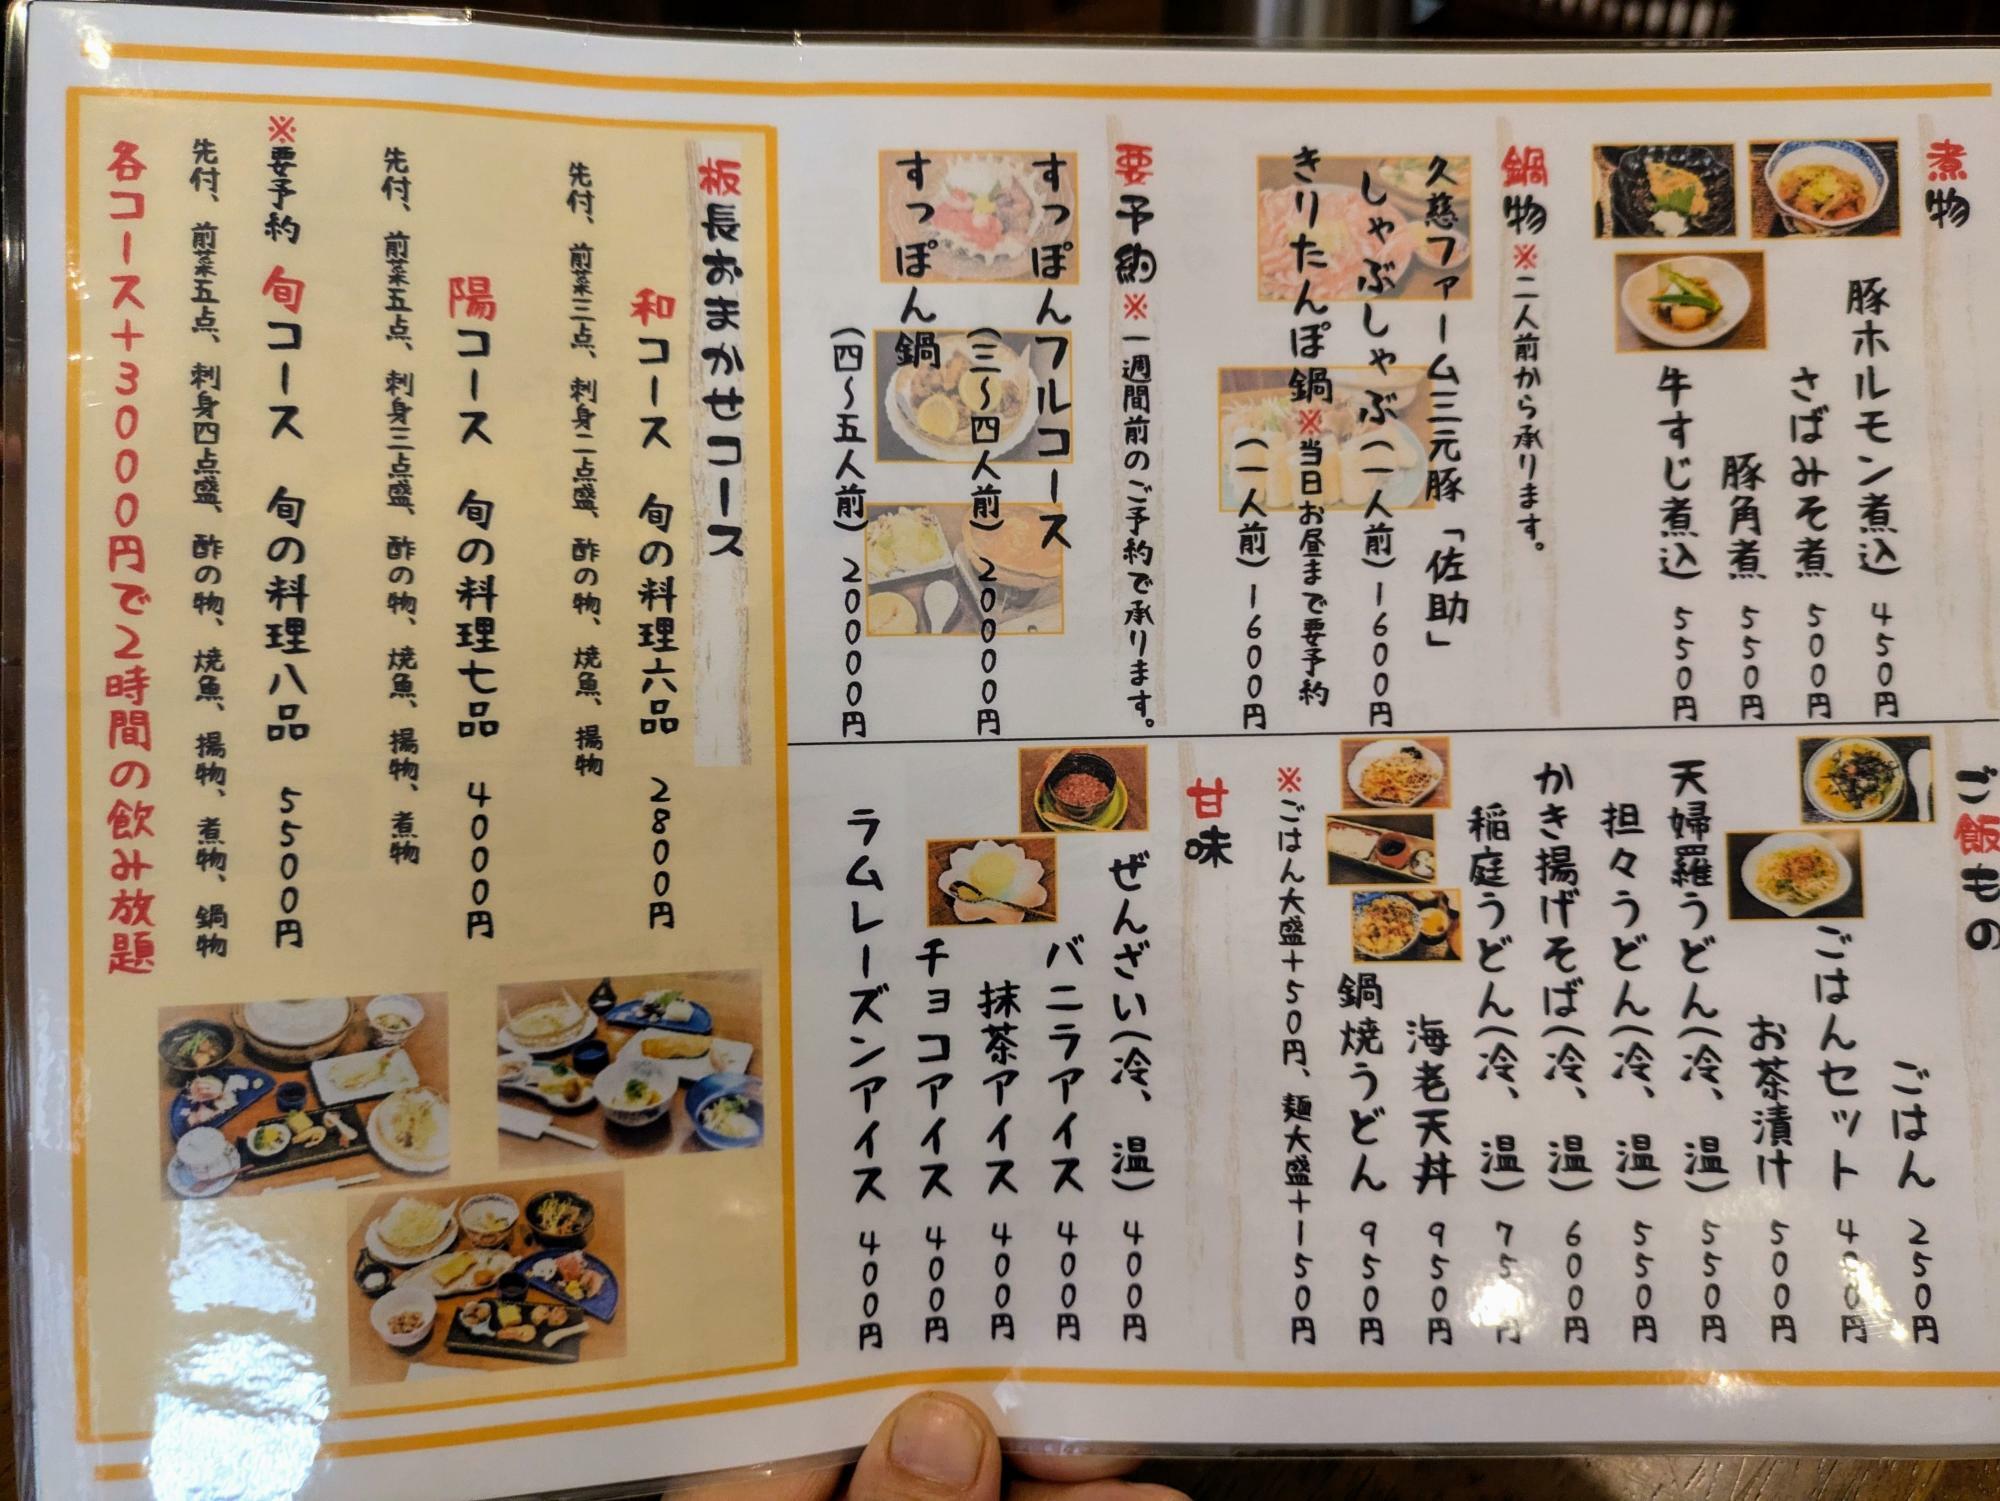 煮物
豚ホルモン煮込 450円
さばみそ煮 500円
豚角煮 550円
牛すじ煮込 550円
鍋物 ※二人前から承ります。
久慈ファーム三元豚「佐助」
しゃぶしゃぶ(一人前)1600円
きりたんぽ鍋 ※当日お昼まで要予約
(一人前)1600円
要予約 ※一週間前のご予約で承ります。
すっぽんフルコース
(三~四人前)20000円
すっぽん鍋
(四~五人前)20000円
ご飯もの
ごはん 250円
ごはんセット 400円
お茶漬け 500円
天婦羅うどん(冷、温) 550円
担々うどん(冷、温) 550円
かき揚げそば(冷、温) 600円
稲庭うどん(冷、温) 750円
海老天丼 950円
鍋焼うどん 950円
※ごはん大盛+50円、麺大盛+150円
甘味
ぜんざい(冷、温) 400円
バニラアイス 400円
抹茶アイス 400円
チョコアイス 400円
ラムレーズンアイス 400円
板長おまかせコース
和コース 旬の料理六品 2800円
先付、前菜三点、刺身二点盛、酢の物、焼魚、揚物
陽コース 旬の料理七品 4000円
先付、前菜五点、刺身三点盛、酢の物、焼魚、揚物、煮物
※要予約 旬コース 旬の料理八品 5500円
先付、前菜五点、刺身四点盛、酢の物、焼魚、揚物、煮物、鍋物
各コース+3000円で2時間の飲み放題